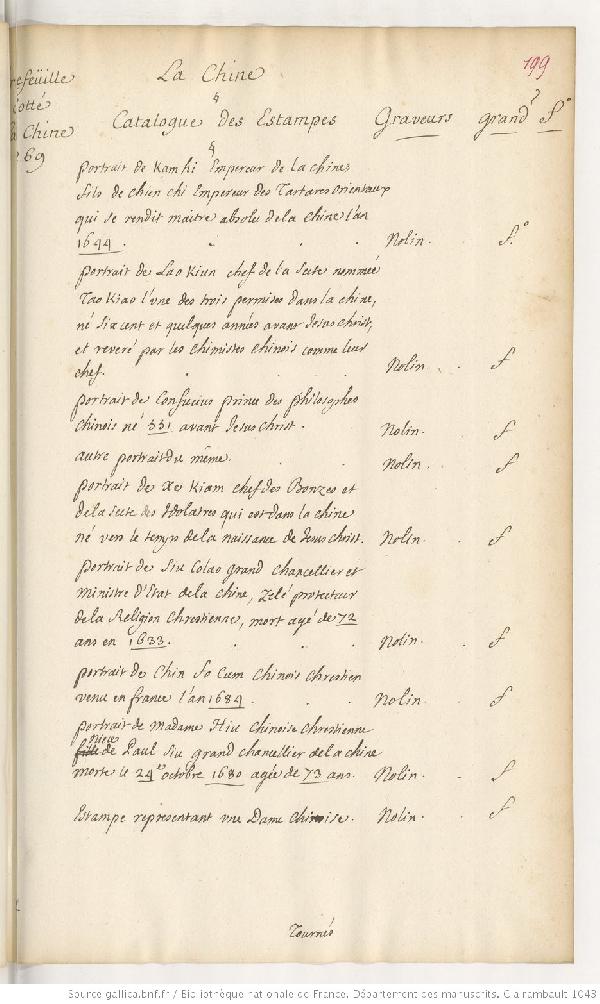 199
refeüille
cotté
La Chine
69
La Chine
Catalogue des Estampes Graveurs grandr fo
portrait de Kamhi Empereur de la chine
fils de Chun chi Empereur des Tartares orientaux
qui se rendit maitre absolu de la Chine l'an
1644. Nolin. f.o
portrait de Lao Kiun chef de la secte nommée
Tao Kiao l'une des trois permises dans la chine,
né six cent et quelques années avant Jesus christ,
et reveré par les chimistes chinois comme leur
chef. Nolin. f
portrait de Confucius prince des philosophes
Chinois né 551 avant Jesus Christ. Nolin. f
autre portrait du même. Nolin. f
portrait de Xe Kiam chef des Bonzes et
de la secte des Idolatres qui est dans la chine
né vers le temps de la naissance de Jesus christ. Nolin. f
portrait de Siu Colao grand chancellier et
ministre d'Etat de la chine, zelé protecteur
de la Religion Chrestienne, mort agé de 72
ans en 1633. Nolin. f
portrait de Chin So Cum Chinois Chrestien
venu en france l'an 1684. Nolin. f
portrait de Madame Hiu Chinoise Chrestienne
niece
fille de Paul Siu grand chancellier de la chine
morte le 24 octobre 1680 agée de 73 ans. Nolin. f
Estampe representant une Dame chinoise. Nolin. f
Tournés
Source gallica.bnf.fr / Bibliothèque nationale de France. Département des manuscrits. Clairambault 1043